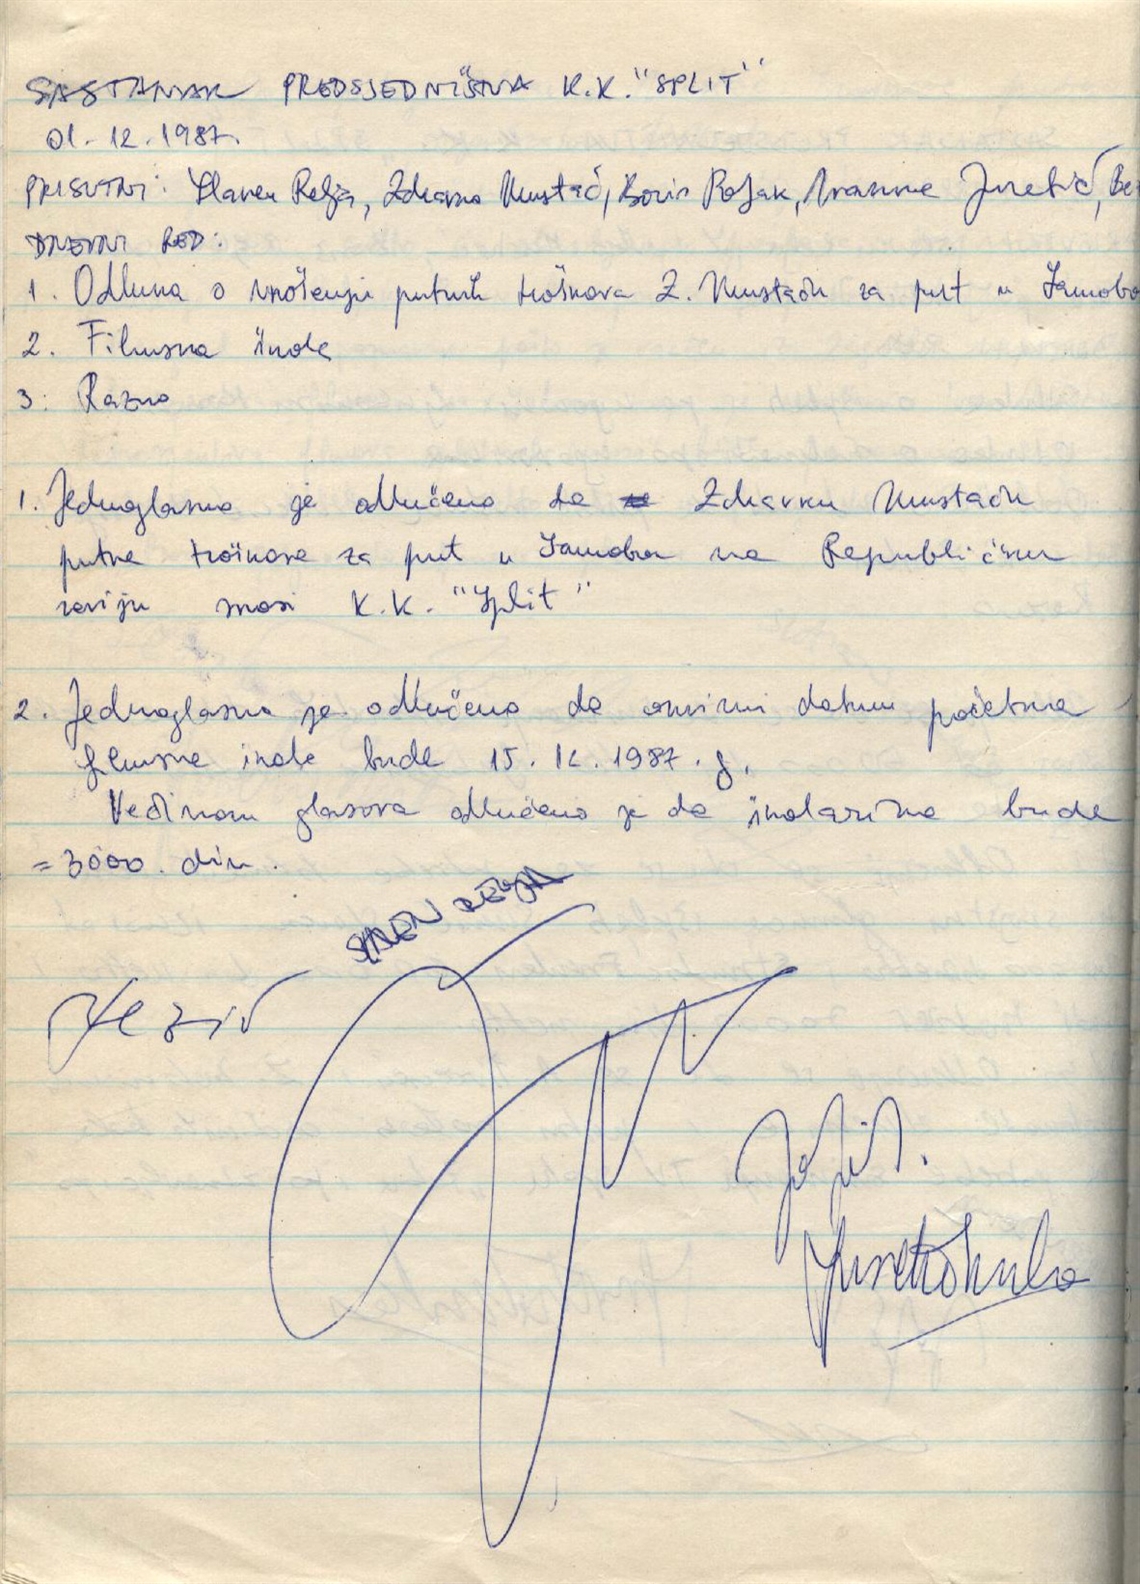 SASTANAK PREDSJEDNIŠTVA K.K. "SPLIT"
01.12.1987.
PRISUTNI: Slaven Relja, Zdravko Mustać, Boris Poljak, Juretić, Be
DNEVNI RED:
1. Odluka o snošenju putnih troškova Z. Mustaću za put u Samobo
2. Filmska škola
3. Razno
1. Jednoglasno je odlučeno da Zdravku Mustaću
putne troškove za put u Samobor na Republičku
reviju snosi K.K. "Split"
2. Jednoglasno je odlučeno da okvirni datum početka
filmske škole bude 15.12.1987.g.
Većinom glasova odlučeno je da školarina bude
=3000. din.
SLAVEN RELJA